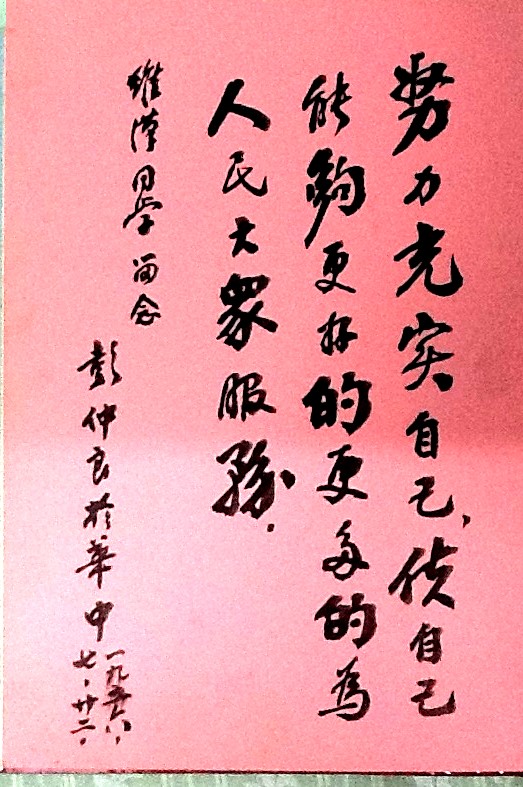 努力充实自己，使自己
能夠更好的更多的為
人民大眾服務．
維漢同学留念
彭仲良於華中
一九五六，
七·廿二，